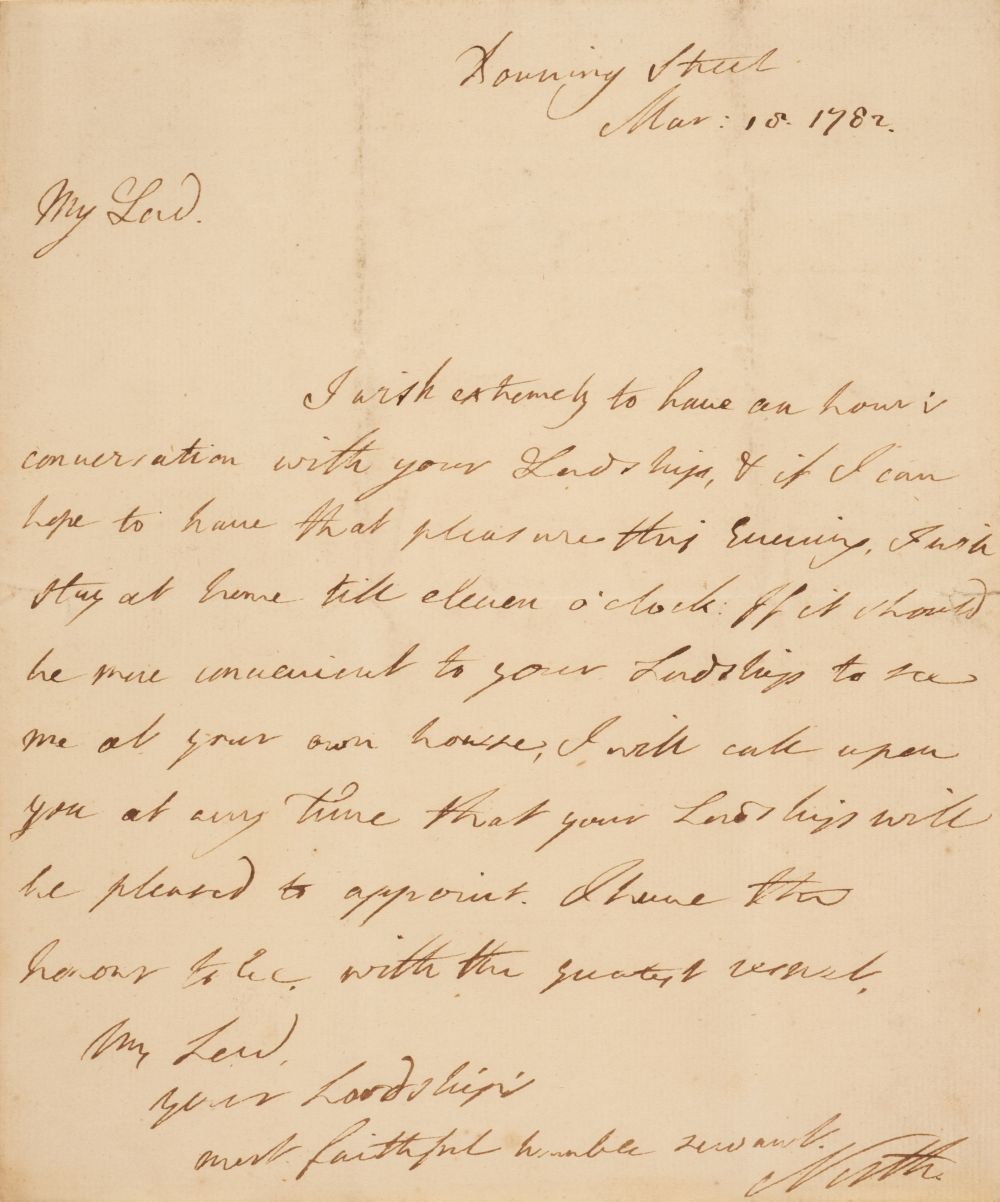 Downing Street
Mar: 18. 1782.
My Lord.
I wish extremely to have an hour's
conversation with your Lordship, & if I can
hope to have that pleasure this Evening, I will
stay at home till eleven o'clock: If it should
be more convenient to your Lordship to see
me at your own house, I will call upon
you at any Time that your Lordship will
be pleased to appoint. I have the
honour to be, with the greatest respect,
My Lord,
your Lordship's
most faithful humble servant.
North